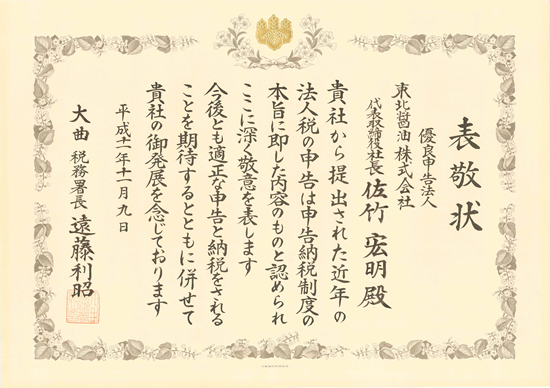 表敬状
優良申告法人
東北醤油株式会社
代表取締役社長 佐竹宏明殿
貴社から提出された近年の
法人税の申告は申告納税制度の
本旨に即した内容のものと認められ
ここに深く敬意を表します
今後とも適正な申告と納税をされる
ことを期待するとともに併せて
貴社の御発展を念じております
平成十一年十一月九日
大曲税務署長 遠藤利昭